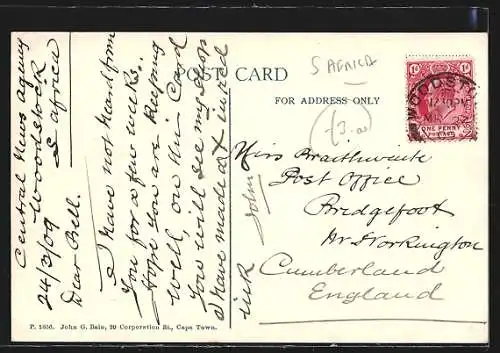 POST CARD
FOR ADDRESS ONLY
S AFRICA
(3.00)
1d 1d
ONE PENNY
WOODSTO
12.30 PM
Central News agency
Woodstock
S africa
24/3/09
Dear Bell.
I have not heard from
you for a few weeks..
hope you are keeping
well, on this Card
You will see my shop
I have made at in red
ink
John
Miss Braithwaite
Post Office
Bridgefoot
Nr Workington
Cumberland
England
P. 1656. John G. Bain, 20 Corporation St., Cape Town.